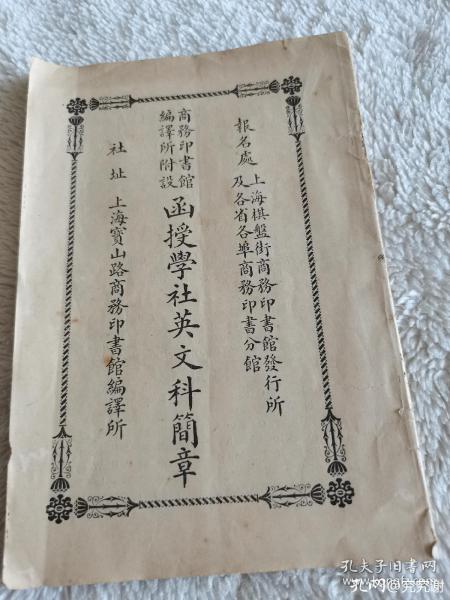 報名處
上海棋盤街商務印書館發行所
及各省各埠商務印書分館
商務印書館
編譯所附設
函授學社英文科簡章
社址 上海寶山路商務印書館編譯所
孔夫子旧书网
孔网@究究谢